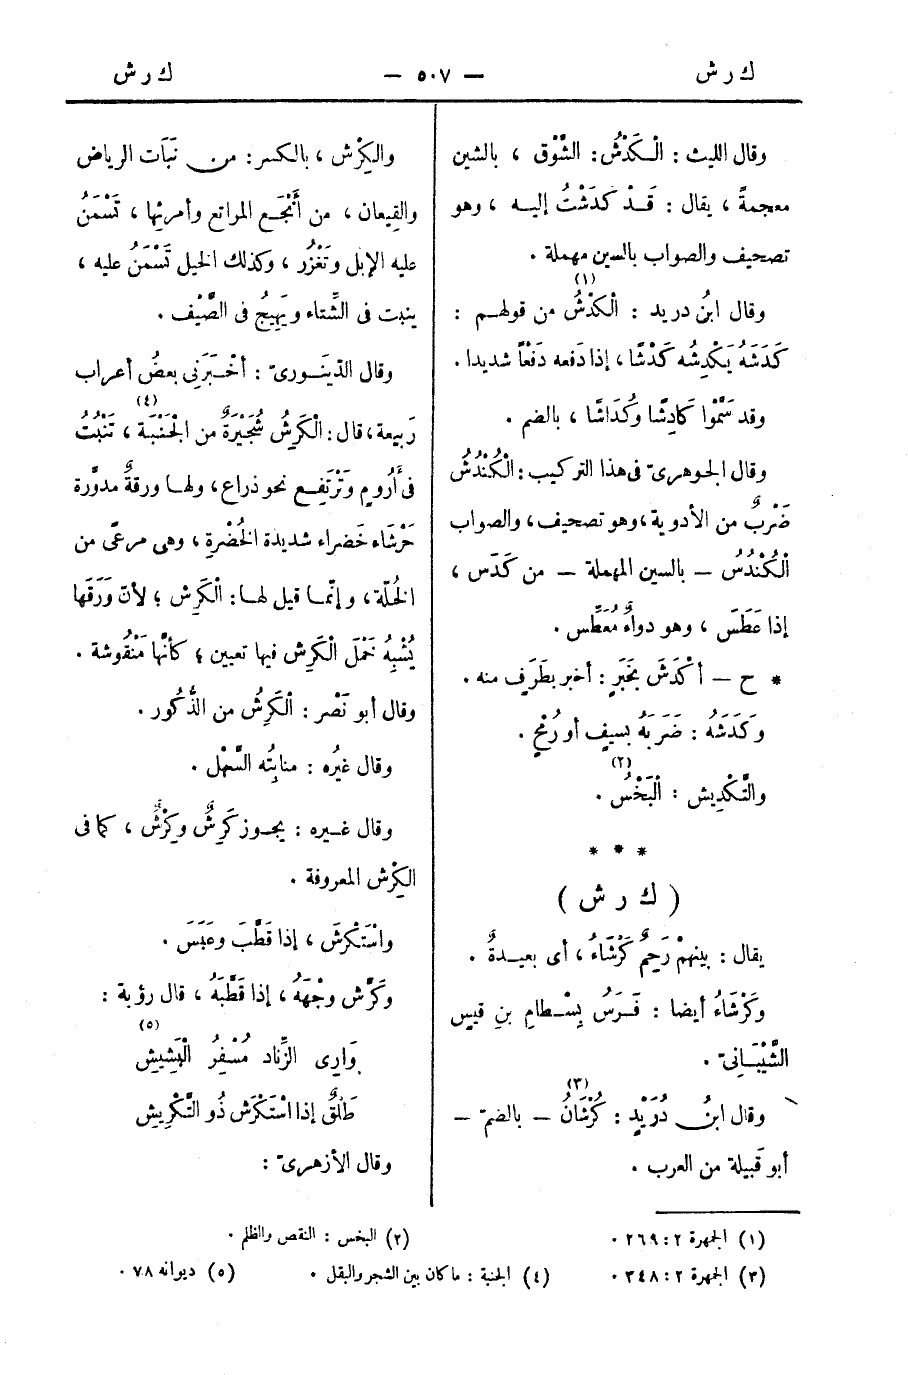 ك ر ش — ٥٠٧ — ك ر ش
وقال الليث : الْكَدْشُ: الشَّوْق ، بالشين
معجمةً ، يقال : قَدْ كَدَشْتُ إليه ، وهو
تصحيف والصواب بالسين مهملة .
وقال ابنُ دريد : الْكَدْشُ (١) من قولهم :
كَدَشَهُ يَكْدِشُه كَدْشًا ، إذا دَفعه دَفْعاً شديدا .
وقد سَمَّوْا كَادِشًا وكُدَاشًا ، بالضم .
وقال الجوهرىّ فى هذا التركيب : الْكُنْدُشُ
ضَرْبٌ من الأدوية ، وهو تصحيف ، والصواب
الْكُنْدُسُ — بالسين المهملة — من كَدَس ،
إذا عَطَسَ ، وهو دواءٌ مُعَطِّس .
* ح — أكْدَشَ بخَبَرٍ : أخبر بطَرَفٍ منه .
وكَدَشَهُ : ضَرَبَهُ بسيفٍ أو رُمْحٍ .
والتَّكْدِيش : الْبَخْسُ (٢) .
* * *
( ك ر ش )
يقال : بينهمْ رَحِمٌ كَرْشَاءُ ، أى بعيدةٌ .
وكَرْشَاءُ أيضا : فَرَسُ بِسْطامِ بنِ قيسٍ
الشَّيْبَانىّ .
وقال ابنُ دُرَيْدٍ : كُرْشَانُ (٣) — بالضمّ —
أبو قَبيلة من العرب .
والكِرْش ، بالكسر : من نَبَات الرياض
والقِيعان ، من أَنْجَع المراتع وأمرئها ، تَسْمَنُ
عليه الإبل وتَغْزُر ، وكذلك الخيل تَسْمَنُ عليه ،
ينبت فى الشِّتاء ويَهِيجُ فى الصَّيْف .
وقال الدِّينَورىّ : أخْبَرَنِى بعضُ أعراب
رَبيعة ، قال : الْكَرِشُ شُجَيْرَةٌ من الْجَنْبَة (٤) ، تَنْبُتُ
فى أَرُومٍ وتَرْتَفِع نحو ذراع ، ولها ورقةٌ مدوَّرة
حَرْشَاء خَضراء شديدة الخُضْرةِ ، وهى مرعًى من
الخُلّة ، وإنّما قيل لها : الْكَرِش ؛ لأنّ وَرَقَها
يُشْبِهُ خَمْلَ الْكَرِش فيها تعيين ؛ كأنَّها مَنْقُوشة .
وقال أبو نَصْر : الْكَرِشُ من الذُّكُور .
وقال غيرُه : منابِتُه السَّهْل .
وقال غيره : يجوز كَرِشٌ وكِرْشٌ ، كما فى
الكِرْش المعروفة .
واسْتَكْرشَ ، إذا قَطَّبَ وعَبَسَ .
وكَرَّش وجْهَهُ ، إذا قَطَّبَهُ ، قال رؤبة :
وَارِى الزِّناد مُسْفِرُ الْبَشِيش (٥)
طَلْقٌ إذا اسْتَكْرَش ذُو التَّكْرِيشِ
وقال الأزهرىّ :
(١) الجمهرة ٢ : ٢٦٩ . (٢) البخس : النقص والظلم .
(٣) الجمهرة ٢ : ٣٤٨ . (٤) الجنبة : ما كان بين الشجر والبقل . (٥) ديوانه ٧٨ .